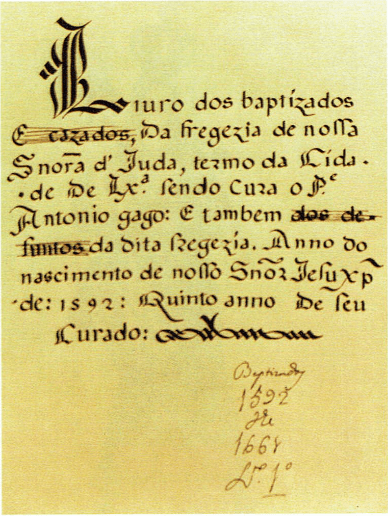 Liuro dos baptizados
E cazados, Da fregezia de nossa
Snorã d' Juda, termo da Cida-
de De Lxª sendo Cura o Pᵉ
Antonio gago: E tambem dos de-
funtos da dita fregezia. Anno do
nascimento de nosso Snõr Jesu xpº
de: 1592: Quinto anno De seu
Curado:
Baptizados
1592
1668
Lº 1º